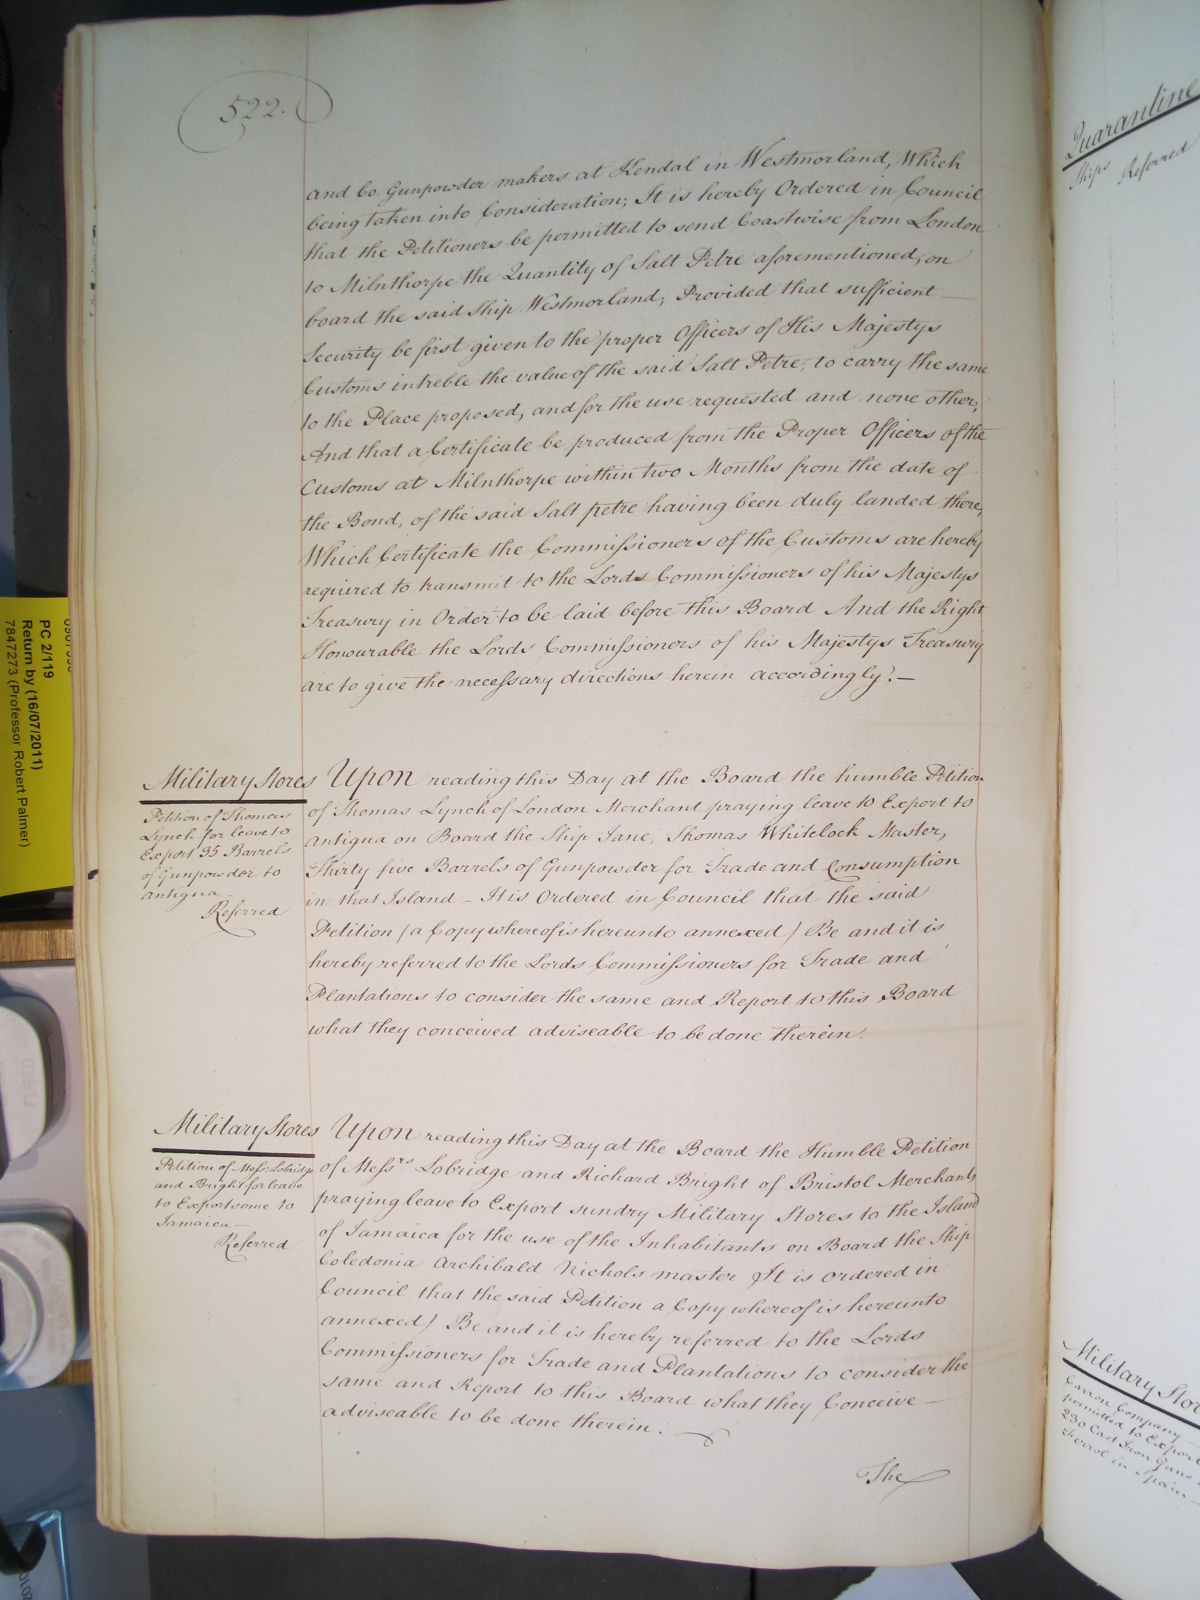 522.
and Co. Gunpowder makers at Kendal in Westmorland, Which
being taken into Consideration; It is hereby Ordered in Council
that the Petitioners be permitted to send Coastwise from London
to Milnthorpe the Quantity of Salt Petre aforementioned, on
board the said Ship Westmorland; Provided that sufficient
Security be first given to the proper Officers of His Majestys
Customs in treble the value of the said Salt Petre, to carry the same
to the Place proposed, and for the use requested and none other;
And that a Certificate be produced from the Proper Officers of the
Customs at Milnthorpe within two Months from the date of
the Bond, of the said Salt petre having been duly landed there,
Which Certificate the Commissioners of the Customs are hereby
required to transmit to the Lords Commissioners of his Majestys
Treasury in Order to be laid before this Board And the Right
Honourable the Lords Commissioners of his Majestys Treasury
are to give the necessary directions herein accordingly.—
Military Stores
Petition of Thomas
Lynch for leave to
Export 35 Barrels
of Gunpowder to
Antigua
Referred
Upon reading this Day at the Board the humble Petition
of Thomas Lynch of London Merchant praying leave to Export to
Antigua on Board the Ship Jane, Thomas Whitelock Master,
Thirty five Barrels of Gunpowder for Trade and Consumption
in that Island - It is Ordered in Council that the said
Petition (a Copy whereof is hereunto annexed) Be and it is
hereby referred to the Lords Commissioners for Trade and
Plantations to consider the same and Report to this Board
what they conceived adviseable to be done therein.
Military Stores
Petition of Messrs. Lobridge
and Bright for leave
to Export some to
Jamaica—
Referred
Upon reading this Day at the Board the Humble Petition
of Messrs Lobridge and Richard Bright of Bristol Merchants
praying leave to Export sundry Military Stores to the Island
of Jamaica for the use of the Inhabitants on Board the Ship
Caledonia Archibald Nichols master It is ordered in
Council that the said Petition a Copy whereof is hereunto
annexed) Be and it is hereby referred to the Lords
Commissioners for Trade and Plantations to consider the
same and Report to this Board what they Conceive—
adviseable to be done therein.
The
Quarantine
Ships Referred
Military Stor
Carron Company
permitted to Export
230 Cast Iron Guns
Ferrol in Spain—
PC 2/119
Return by (16/07/2011)
7847273 (Professor Robert Palmer)